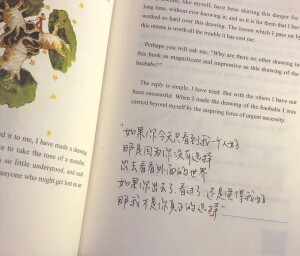 time, without ever knowing it; and so it is for them that I ha
worked so hard over this drawing. The lesson which I pass on by
this means is worth all the trouble it has cost me.
Perhaps you will ask me, "Why are there no other drawing in
this book as magnificent and impressive as this drawing of the
baobabs?"
The reply is simple. I have tried. But with the others I have not
been successful. When I made the drawing of the baobabs I was
carried beyond myself by the inspiring force of urgent necessity.
d it to me, I have made a drawing
e to take the tone of a moralist
s so little understood, and such
anyone who might get lost on an
"如果你今天只看到我一个人好
那是因为你没有选择
出去看看外面的世界
如果你出去了 看过了 还是觉得我好
那我才是你真正的选择"